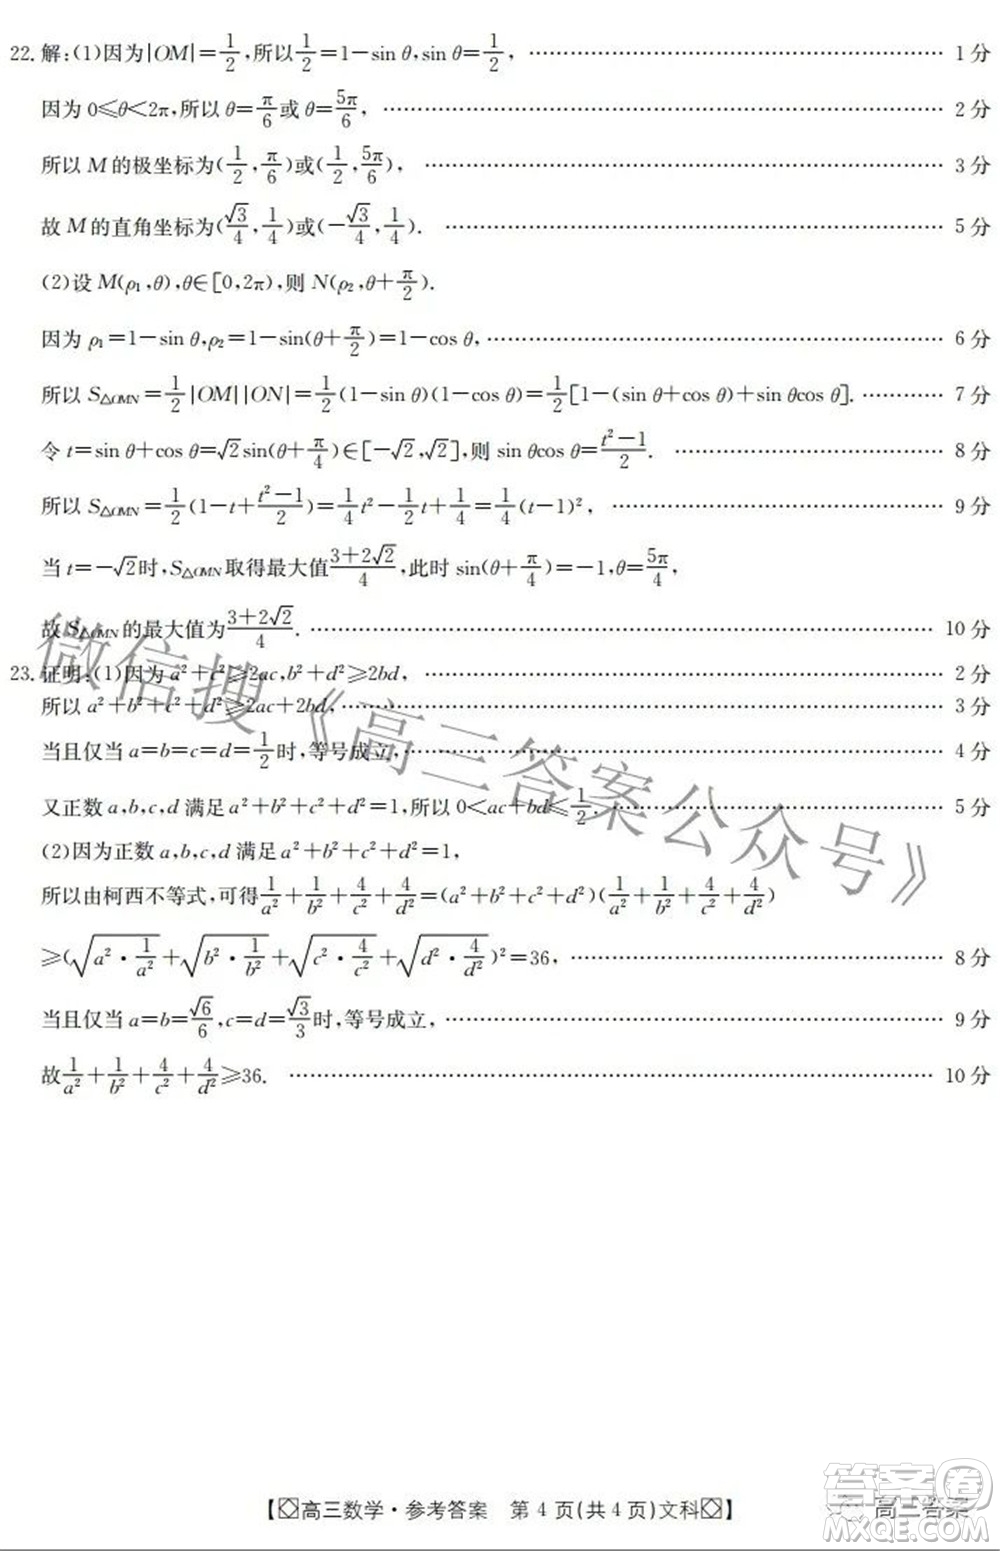 22. 解:(1)因为|OM|=1/2,所以1/2=1-sin θ,sin θ=1/2, …… 1 分
因为 0≤θ<2π,所以 θ=π/6或 θ=5π/6, …… 2 分
所以 M 的极坐标为(1/2,π/6)或(1/2,5π/6), …… 3 分
故 M 的直角坐标为(√3/4,1/4)或(-√3/4,1/4). …… 5 分
(2)设 M(ρ₁,θ),θ∈[0,2π),则 N(ρ₂,θ+π/2).
因为 ρ₁=1-sin θ,ρ₂=1-sin(θ+π/2)=1-cos θ, …… 6 分
所以 S△OMN=1/2|OM||ON|=1/2(1-sin θ)(1-cos θ)=1/2[1-(sin θ+cos θ)+sin θcos θ]. …… 7 分
令 t=sin θ+cos θ=√2sin(θ+π/4)∈[-√2,√2],则 sin θcos θ=(t²-1)/2. …… 8 分
所以 S△OMN=1/2(1-t+(t²-1)/2)=1/4t²-1/2t+1/4=1/4(t-1)², …… 9 分
当 t=-√2时,S△OMN取得最大值(3+2√2)/4,此时 sin(θ+π/4)=-1,θ=5π/4,
故 S△OMN的最大值为(3+2√2)/4. …… 10 分
23. 证明:(1)因为 a²+c²≥2ac,b²+d²≥2bd, …… 2 分
所以 a²+b²+c²+d²≥2ac+2bd, …… 3 分
当且仅当 a=b=c=d=1/2时,等号成立, …… 4 分
又正数 a,b,c,d 满足 a²+b²+c²+d²=1,所以 0<ac+bd≤1/2. …… 5 分
(2)因为正数 a,b,c,d 满足 a²+b²+c²+d²=1,
所以由柯西不等式,可得1/a²+1/b²+4/c²+4/d²=(a²+b²+c²+d²)(1/a²+1/b²+4/c²+4/d²)
≥(√(a²·1/a²)+√(b²·1/b²)+√(c²·4/c²)+√(d²·4/d²))²=36, …… 8 分
当且仅当 a=b=√6/6,c=d=√3/3时,等号成立, …… 9 分
故1/a²+1/b²+4/c²+4/d²≥36. …… 10 分
微信搜《高三答案公众号》
【◇高三数学·参考答案 第 4 页(共 4 页)文科◇】
高三答案
答案圈
MXQE.COM